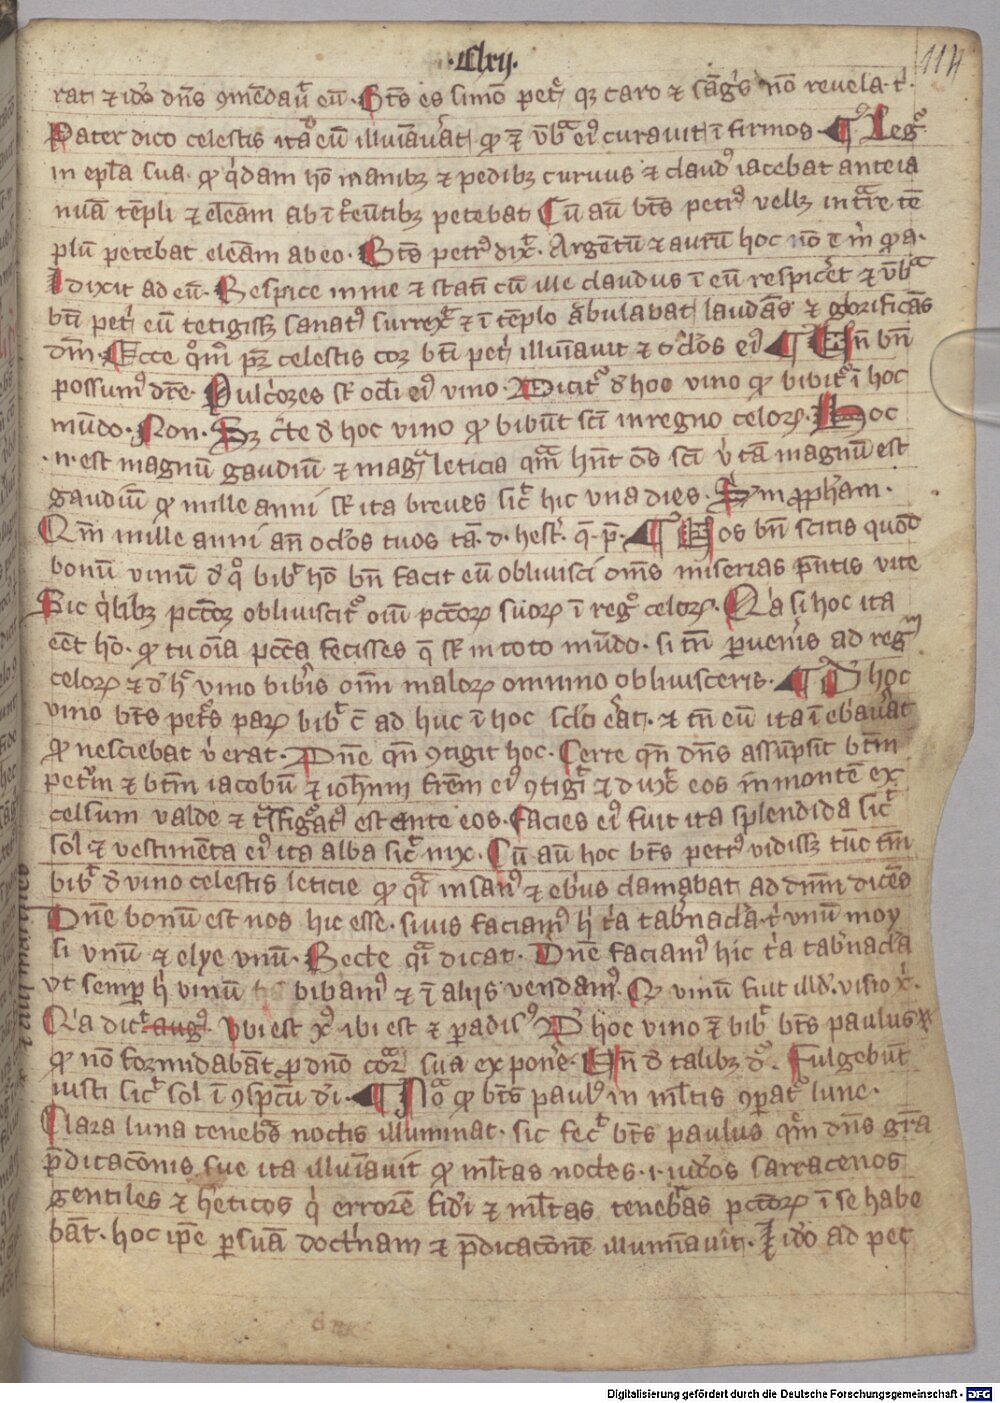 ·Clxij·
114
rat ⁊ iđo dn̄s ꝯmēdauͭ eū. Bt̄s es simō petꝰ qꝫ caro ⁊ sāgⁱs nō reuela.t'.
Pater dico celestis ita eū illuīauᵃat ꝙ ⁊ v̄bᵃ eiꝰ curauit īfirmos ¶ Legꝰ
in epl̄a sua. ꝙ qⁱdam hō manibꝫ ⁊ pedibꝫ curuus ⁊ claudꝰ iacebat ante ia
nuā tēpli ⁊ elēam ab ītrēūtibꝫ petebat Cū aū bt̄s petrꝰ vellꝫ intᵃre tē
plū petebat elēam ab eo. Bt̄s petrꝰ dixͭ. Argētū ⁊ aurū hoc nō ē m̄ ꝓpa.
⁊ dixit ad eū. Respice in me ⁊ statī cū ille claudus ī eū respic̄et ⁊ v̄bᵃ
bt̄i petⁱ eū tetigissꝫ sanatꝰ surrexͭ ⁊ ī tēplo ābulabat laudās ⁊ glorificās
dm̄. Ecce qͦmͦ pꝫ celestis coꝛ bt̄i petⁱ illuīauit ⁊ oc̄los eiꝰ ¶ Vn̄ bn̄
possumꝰ dr̄e. Pulcͦꝛes st̄ ocl̄i eiꝰ vino. Dicitꝰ đ hoc vino ꝙ bibitꝰ ī hoc
mūdo. Non. Sꝫ c̄te đ hoc vino ꝙ bibūt sc̄i in regno celoꝝ. Hoc
.n. est magnū gaudiū ⁊ magᵃ leticia qᵃm hn̄t ōs sc̄i v' tā magnū est
gaudiū ꝙ mille anni st̄ ita breues sicͭ hic vna dies. Sm̄ ꝓpham.
Qm̄ mille anni an̄ oc̄los tuos tā. đ. hestⁱ. q̄. p̄. ¶ Vos bn̄ scitis quod
bonū vinū đ qͦ bibͭ hō bn̄ facit eū obliuisci om̄s miserias p̄ntis vite
Sic qⁱlibꝫ pctōꝛ obliuiscitꝰ oīū pctōꝝ suoꝝ ī regͦ celoꝝ. Qᵃ si hoc ita
eēt hō. ꝙ tu oīa pccā fecisses q̄ st̄ in toto mūdo. si tn̄ ꝑuen̄is ad regm̄
celoꝝ ⁊ đ hͦ vino bibⁱis oīm maloꝝ omnino obliuisceris. ¶ D hoc
vino bt̄s petꝰs paꝝ bibͭ c̄ ad huc ī hoc sclo ēat. ⁊ tn̄ eū ita īebⁱauᵃat
ꝙ nesciebat v' erat. Dn̄e qn̄ ꝯtigit hoc. Certe qn̄ dn̄s assūpsit bt̄m
petꝰm ⁊ bt̄m iacobū ⁊ ioh̄nm frēm eiꝰ ꝯtigͭ ⁊ duxͭ eos in montē ex
celsum valde ⁊ tᵃsfigᵃatꝰ est ante eos. Facies eiꝰ fuit ita splendida sicͭ
sol ⁊ vestimēta eiꝰ ita alba sicͭ nix. Cū aū hoc bt̄s petrꝰ vidissꝫ tūc tm̄
bibͭ đ vino celestis leticie ꝙ qͣi insanꝰ ⁊ ebⁱus clamabat ad dn̄m dicēs
Dn̄e bonū est nos hic esse. si vis faciamꝰ hͦ tⁱa tab̄nacl̄a. tⁱ vnū moy
si vnū ⁊ elye vnū. Recte qͣi dicat. Dn̄e faciamꝰ hic tⁱa tab̄nacl̄a
vt semꝑ hͦ vinū bibamꝰ ⁊ ī alijs vendamꝰ. Q vinū fuit illđ. visio xⁱ.
Qᵃ dicͭ augꝰ Vbi est xꝰ ibi est ⁊ ꝑadisꝰ D hoc vino ⁊ bibͭ bt̄s paulus
ꝙ nō foꝛmidabāt ꝓ dn̄o coꝛᵃ sua exponē. Vn̄ đ talibꝫ dꝰ. Fulgebūt
iusti sicͭ sol ī ꝯspc̄tu dⁱi. ¶ Noᵃ ꝙ bt̄s paulꝰ in ml̄tis ꝯpatꝰ lune.
Clara luna tenebᵃs noctis illuminat. sic fecͭ bt̄s paulus qᵃm dn̄s grā
p̄dicacōnis sue ita illuīauit ꝙ ml̄tas noctes .i. iuđos sarracenos
gentiles ⁊ h̄eticos qⁱ errorē fiđi ⁊ ml̄tas tenebᵃs pctōꝝ ī se habe
bāt. hoc ip̄e ꝑ suā doctⁱnam ⁊ p̄dicacōnē illumīauit. Iđo ad pet
Digitalisierung gefördert durch die Deutsche Forschungsgemeinschaft - DFG